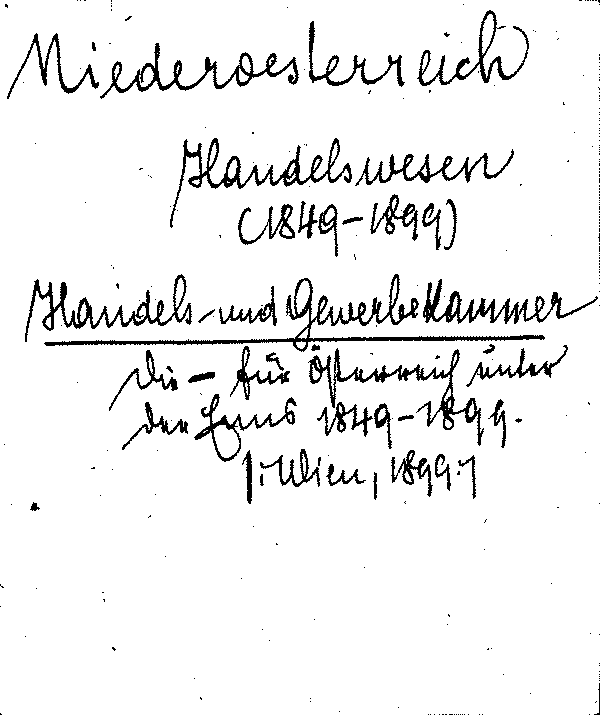 Niederoesterreich
Handelswesen
(1849-1899)
Handels- und Gewerbekammer
Die - für Österreich unter
der Enns 1849-1899.
/:Wien, 1899:/